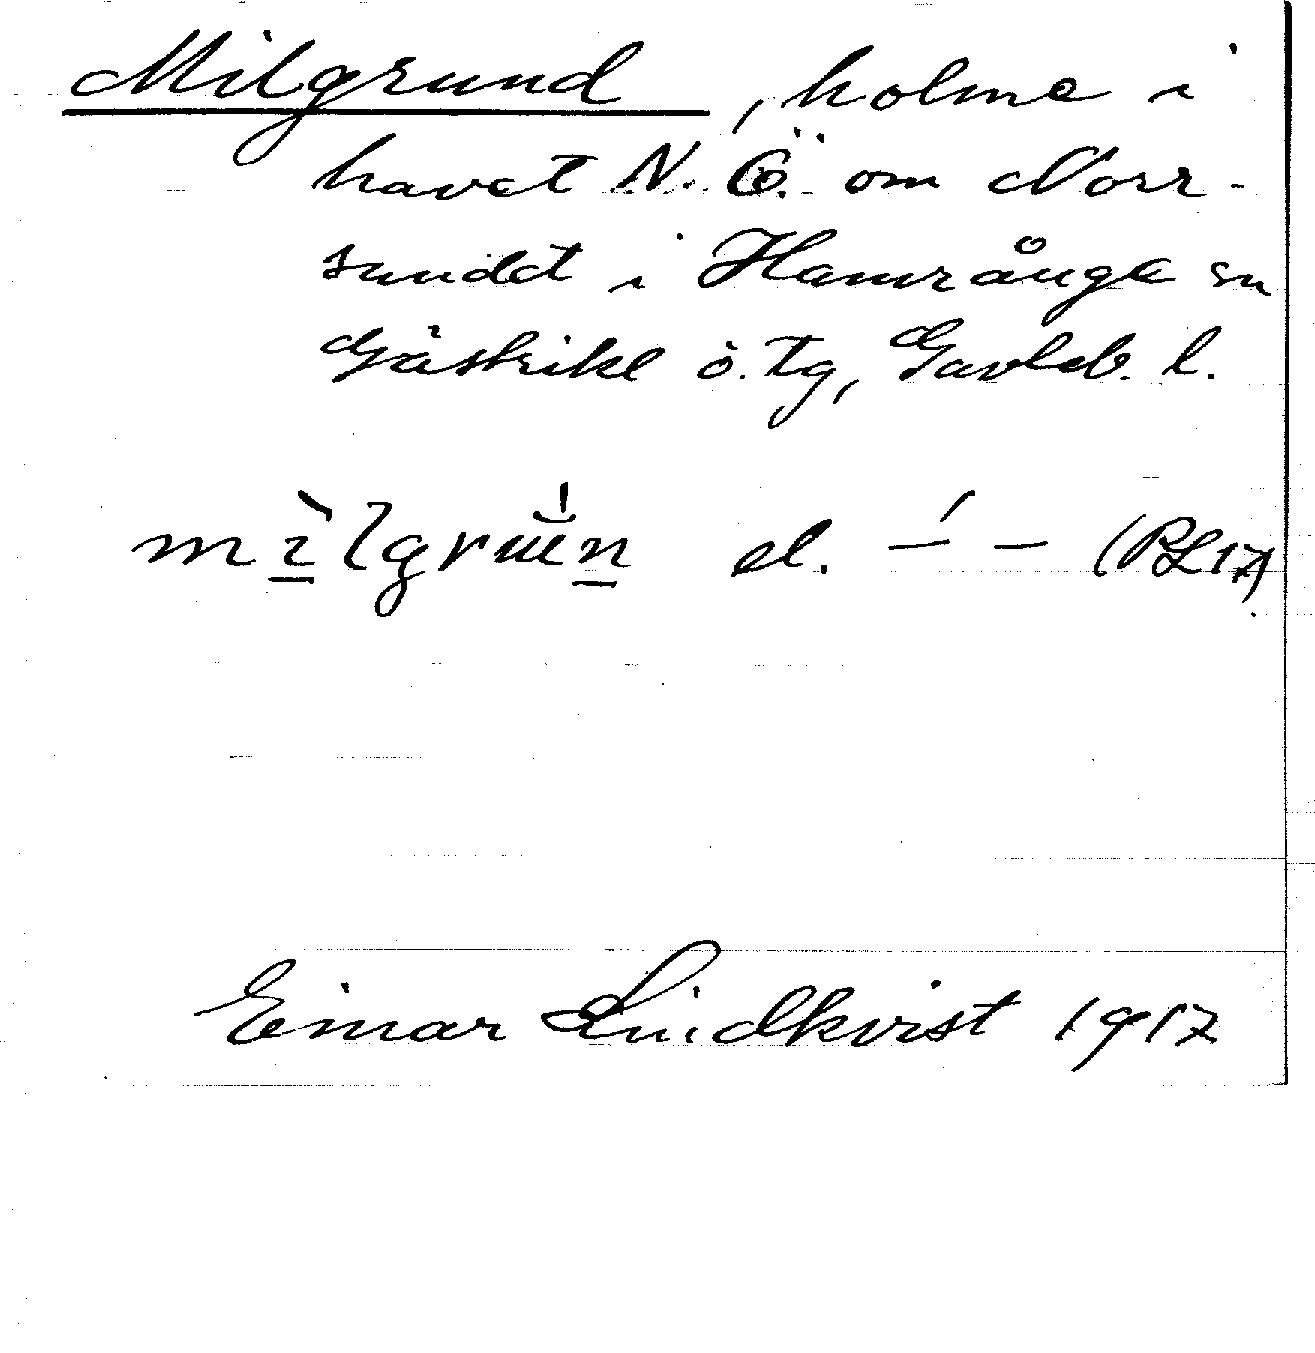 Milgrund, holme i
havet N. Ö. om Norr-
sundet i Hamrånge sn
Gästrike ö. tg, Gävleb. l.
mìlgruń̠ el. –́ – (PL 17)
Einar Lindkvist 1917